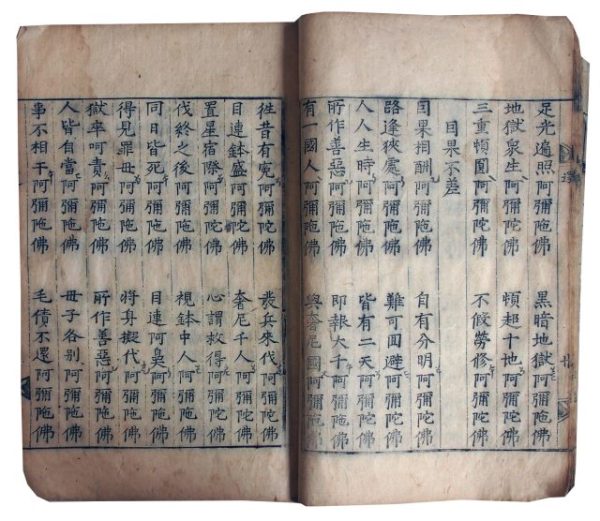 足光遍照阿彌陀佛　黑暗地獄阿彌陀佛
地獄衆生阿彌陀佛　頓超十地阿彌陀佛
三重頓圓阿彌陀佛　不勞修阿彌陀佛
因果不差
因果相酬阿彌陀佛　自有分明阿彌陀佛
路逢狹處阿彌陀佛　難可回避阿彌陀佛
人人生時阿彌陀佛　皆有二天阿彌陀佛
所作善惡阿彌陀佛　即報大千阿彌陀佛
有一國人阿彌陀佛　與奢尼國阿彌陀佛
徃昔有寃阿彌陀佛　發兵來伐阿彌陀佛
目連鉢盛阿彌陀佛　奢尼千人阿彌陀佛
置星宿際阿彌陀佛　心謂救得阿彌陀佛
伐終之後阿彌陀佛　視鉢中人阿彌陀佛
同日皆死阿彌陀佛　目連阿阿彌陀佛
得見罪母阿彌陀佛　將身擬代阿彌陀佛
獄卒呵責阿彌陀佛　所作善惡阿彌陀佛
人皆自當阿彌陀佛　母子各別阿彌陀佛
事不相干阿彌陀佛　毛債不還阿彌陀佛